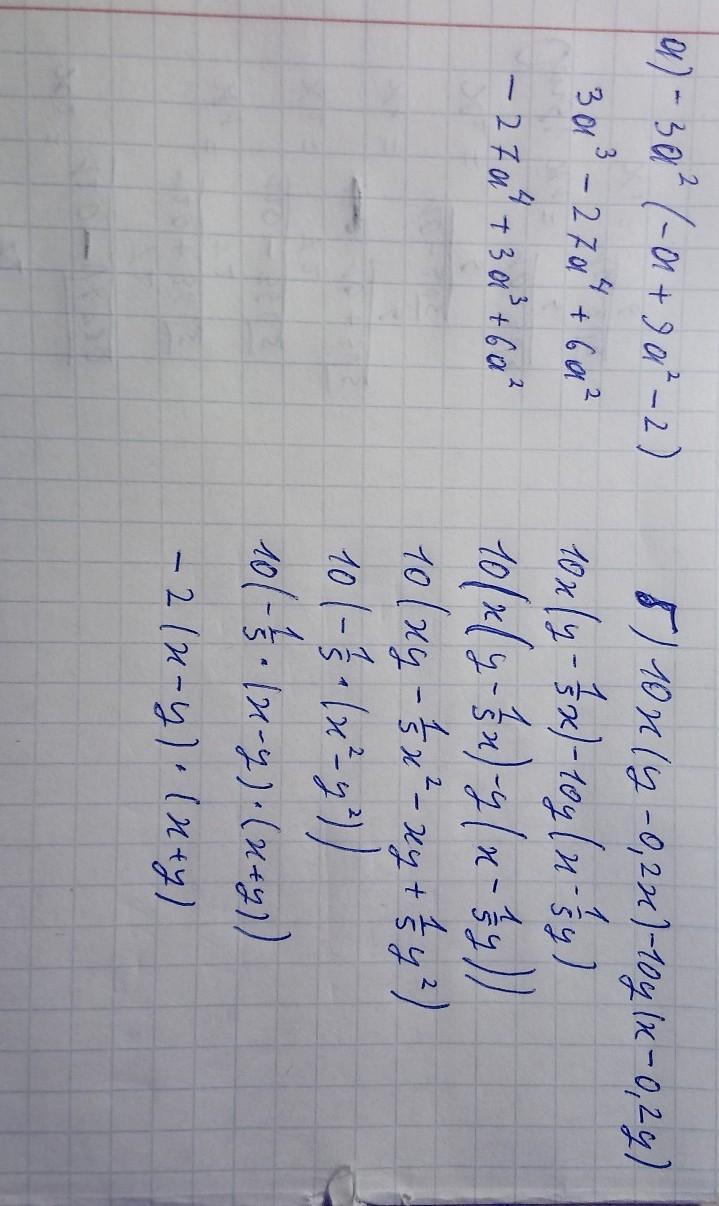 а) -3a² (-a + 9a² - 2)
3a³ - 27a⁴ + 6a²
- 27a⁴ + 3a³ + 6a²
б) 10x(y - 0,2x) - 10y(x - 0,2y)
10x(y - 1/5x) - 10y(x - 1/5y)
10(x(y - 1/5x) - y(x - 1/5y))
10(xy - 1/5x² - xy + 1/5y²)
10(- 1/5 · (x² - y²))
10(- 1/5 · (x - y) · (x + y))
- 2(x - y) · (x + y)